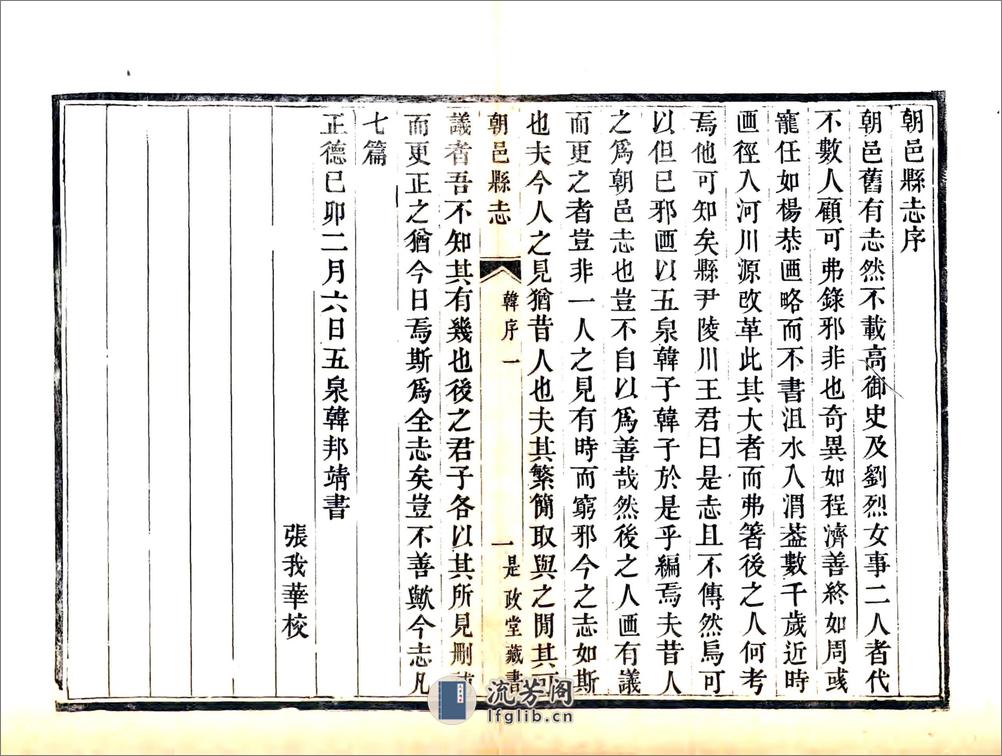 朝邑縣志序
朝邑舊有志然不載高御史及劉烈女事二人者代
不數人顧可弗錄邪非也奇異如程濟善終如周彧
寵任如楊恭画略而不書沮水入渭葢數千歲近時
画徑入河川源改革此其大者而弗箸後之人何考
焉他可知矣縣尹陵川王君曰是志且不傳然烏可
以但已邪画以五泉韓子韓子於是乎編焉夫昔人
之爲朝邑志也豈不自以爲善哉然後之人画有議
而更之者豈非一人之見有時而窮邪今之志如斯
也夫今人之見猶昔人也夫其繁簡取與之閒其可
朝邑縣志
韓序
一
一是政堂藏書
議者吾不知其有幾也後之君子各以其所見刪
而更正之猶今日焉斯爲全志矣豈不善歟今志凡
七篇
正德己卯二月六日五泉韓邦靖書
張我華校
流芳阁
lfglib.cn